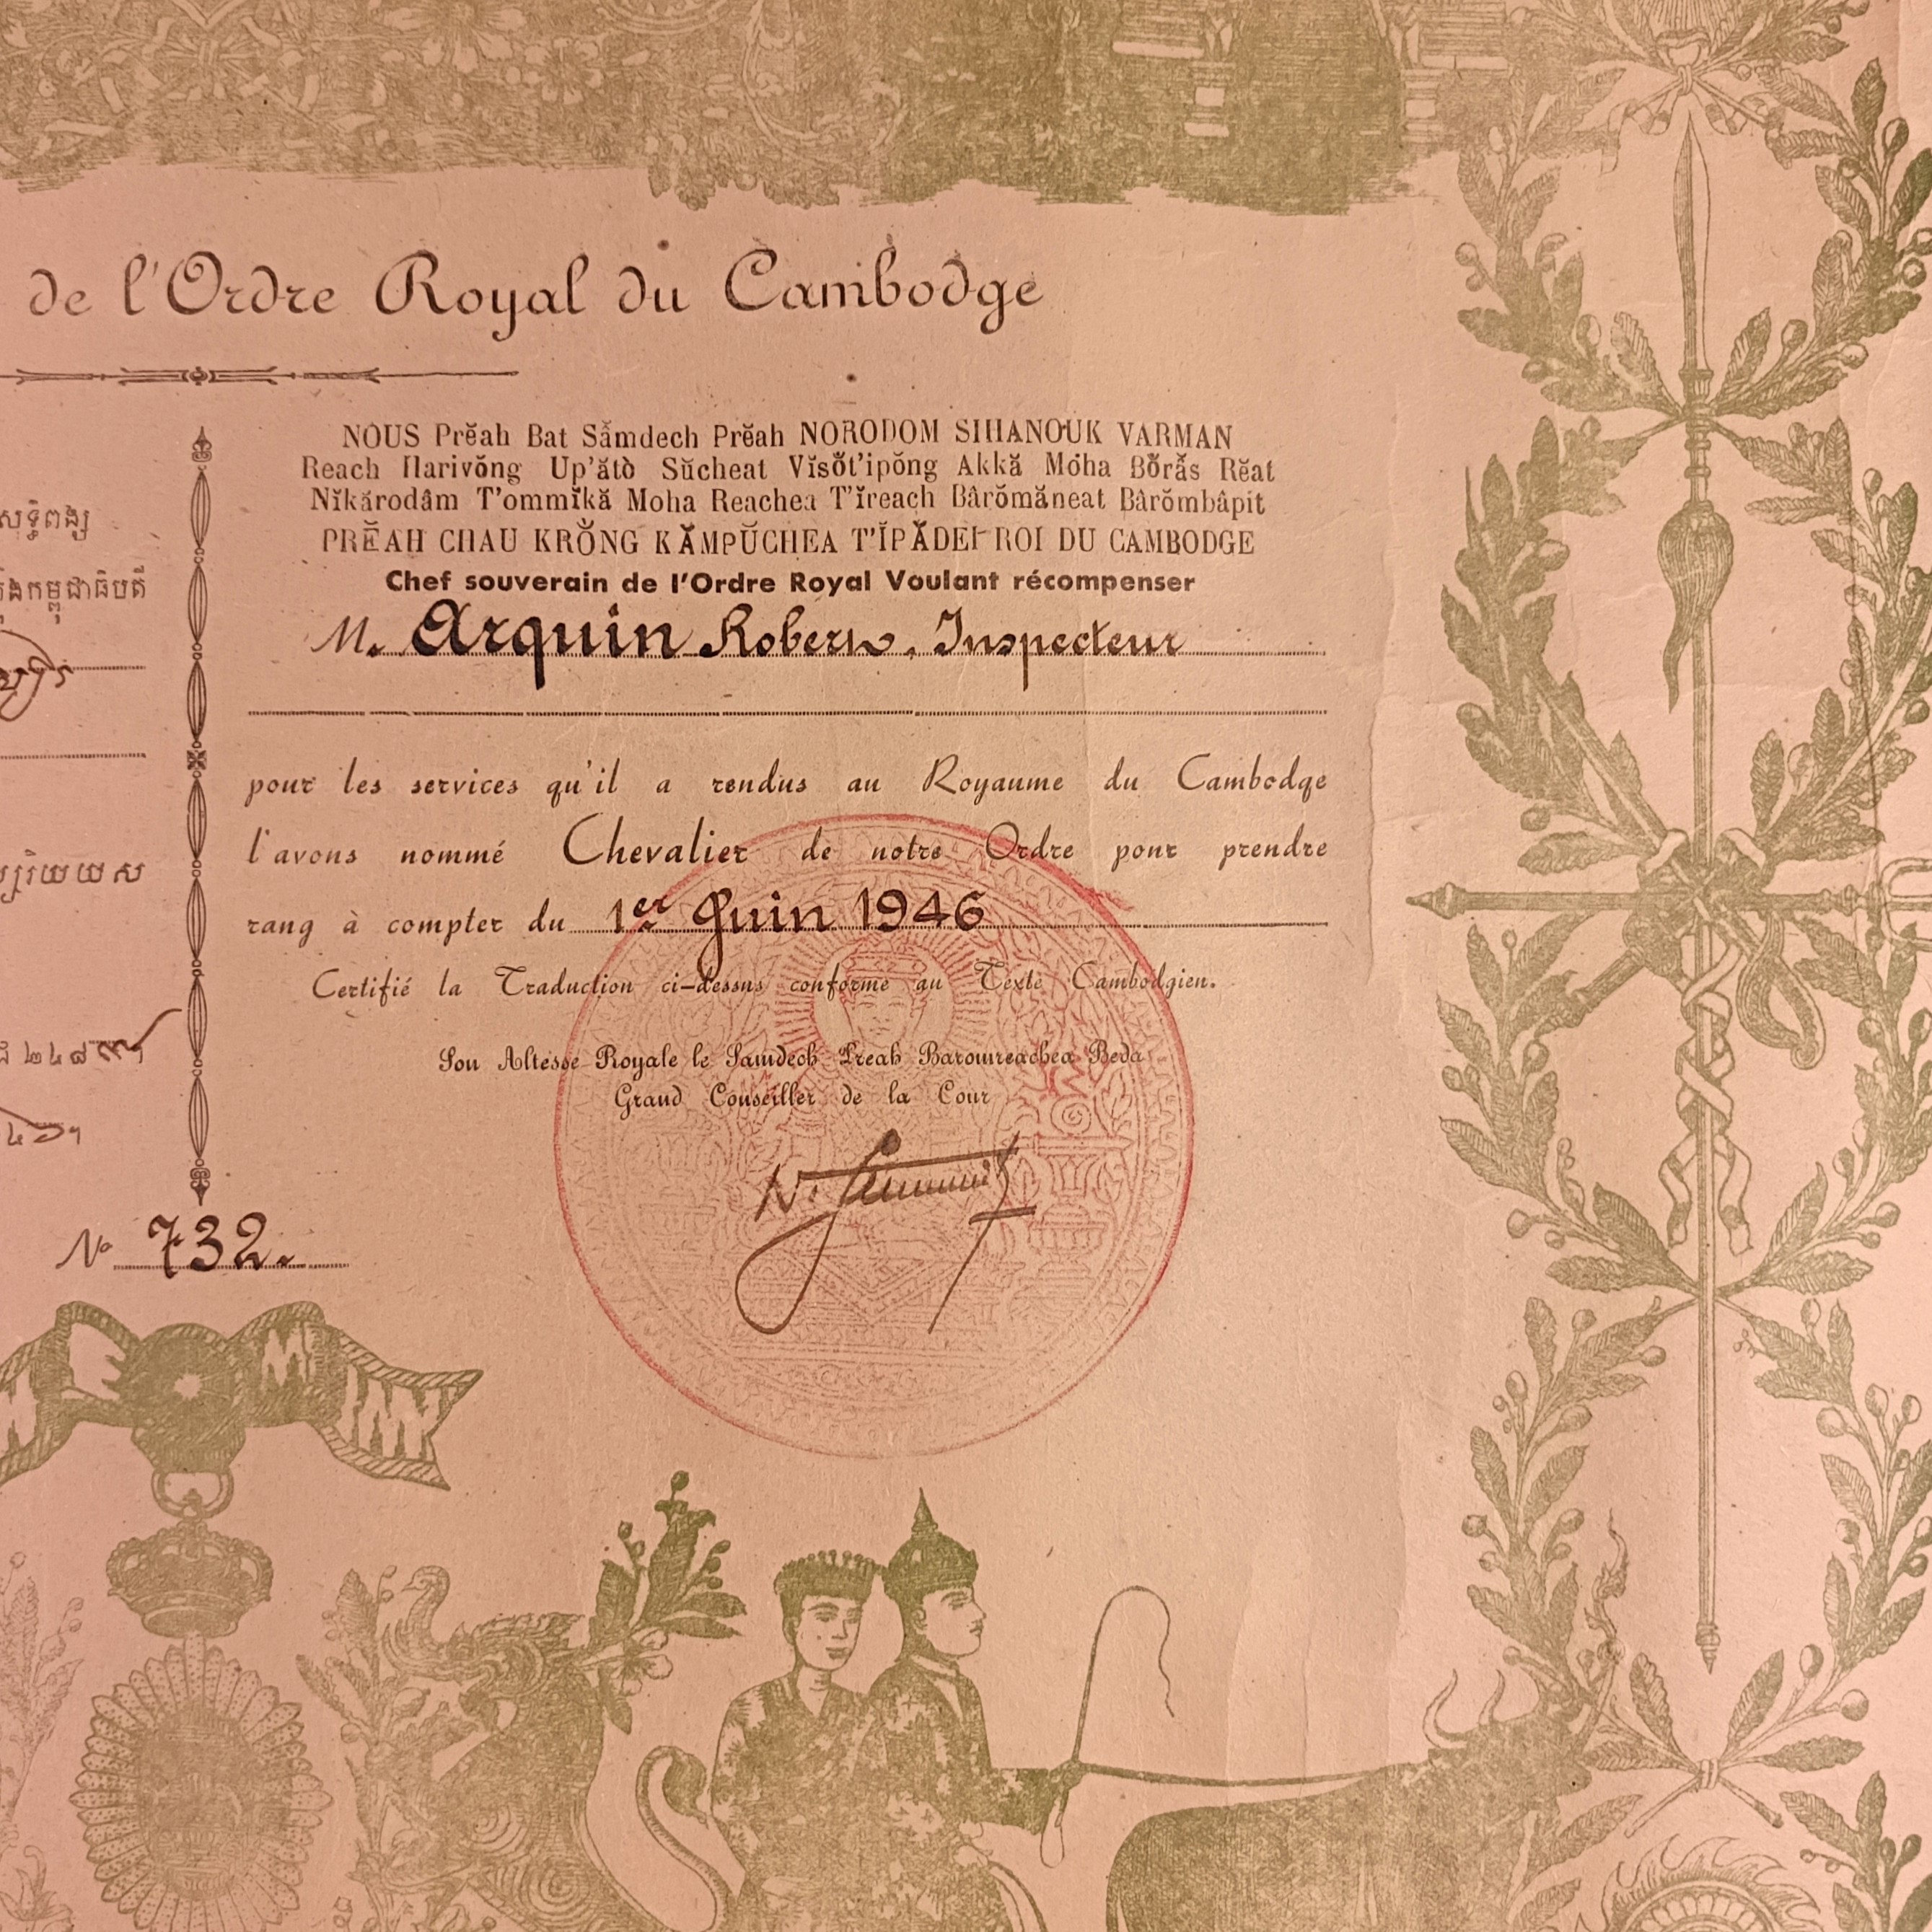 de l'Ordre Royal du Cambodge
NOUS Prĕah Bat Sâmdech Prĕah NORODOM SIHANOUK VARMAN
Reach Harivŏng Up'ătò Sŭcheat Vĭsŏt'ipŏng Akkă Móha Bŏrăs Rĕat
Nĭkărodâm T'ommĭkă Moha Reachea T'ĭreach Bârŏmăneat Bârŏmbâpit
PRĔAH CHAU KRŎNG KĂMPŬCHEA T'ĬPĂDEI ROI DU CAMBODGE
Chef souverain de l'Ordre Royal Voulant récompenser
M. Arquin Robert, Inspecteur
pour les services qu'il a rendus au Royaume du Cambodge
l'avons nommé Chevalier de notre Ordre pour prendre
rang à compter du 1er Juin 1946
Certifié la Traduction ci-dessus conforme au Texte Cambodgien.
Son Altesse Royale le Samdech Preah Baromreachea Beda
Grand Conseiller de la Cour
សុទ្ធិពង្ស
កម្ពុជាធិបតី
No 732.